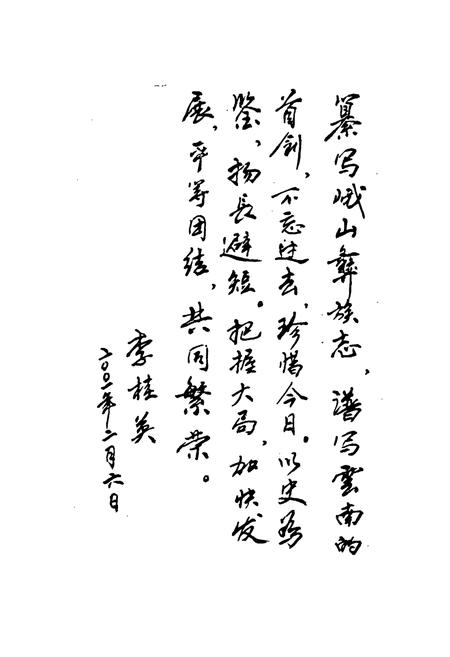 纂写峨山彝族志，谱写雲南的
首创，不忘过去，珍惜今日。以史为
鉴，扬長避短。把握大局，加快发
展，平等团结，共同繁荣。
李桂英
二〇〇一年二月六日